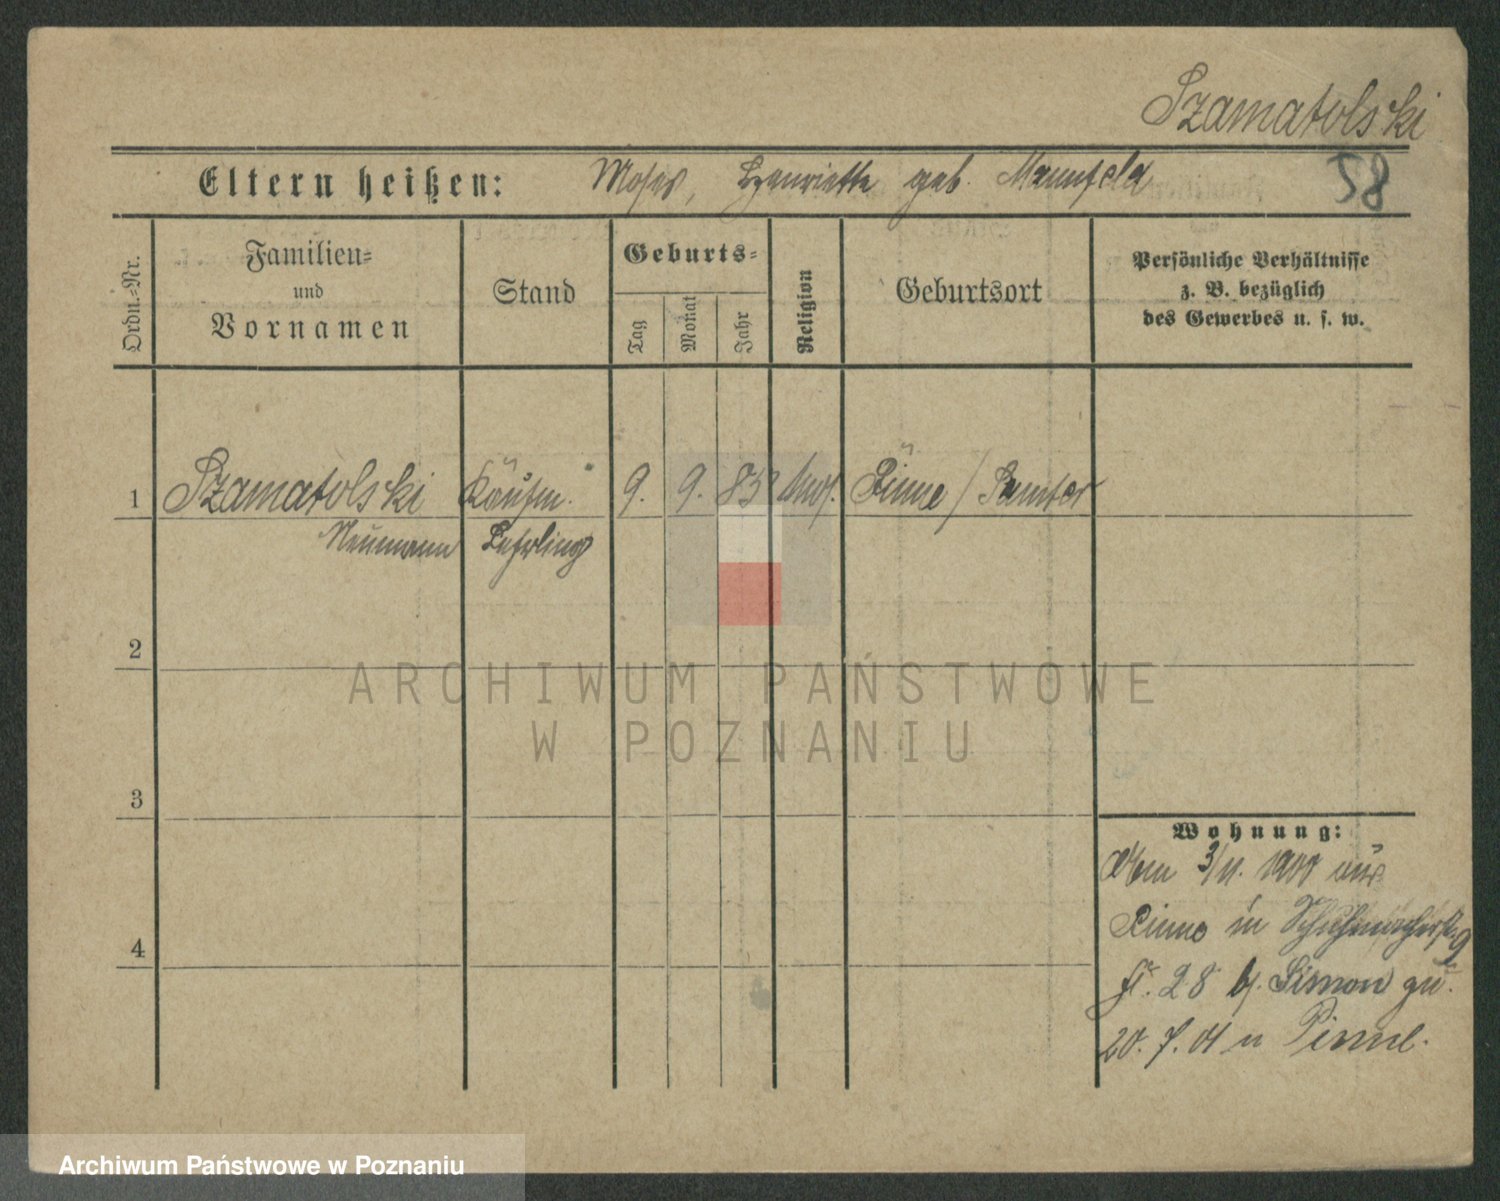 Szamatolski
Eltern heißen: Moses, Henriette geb. Mannfeld
58
Ordn.-Nr.
Familien-
und
Vornamen
Stand
Geburts-
Tag
Monat
Jahr
Religion
Geburtsort
Persönliche Verhältnisse
z. B. bezüglich
des Gewerbes u. s. w.
1 Szamatolski Kaufm. 9. 9. 85 mos. Pinne / Samter
Neumann Lehrling
2
ARCHIWUM PAŃSTWOWE
W POZNANIU
3
Wohnung:
3/11. 1900 aus
Pinne in Schuhmacherstr.
28 b. Simon
20. 7. 01 n Pinne.
4
Archiwum Państwowe w Poznaniu